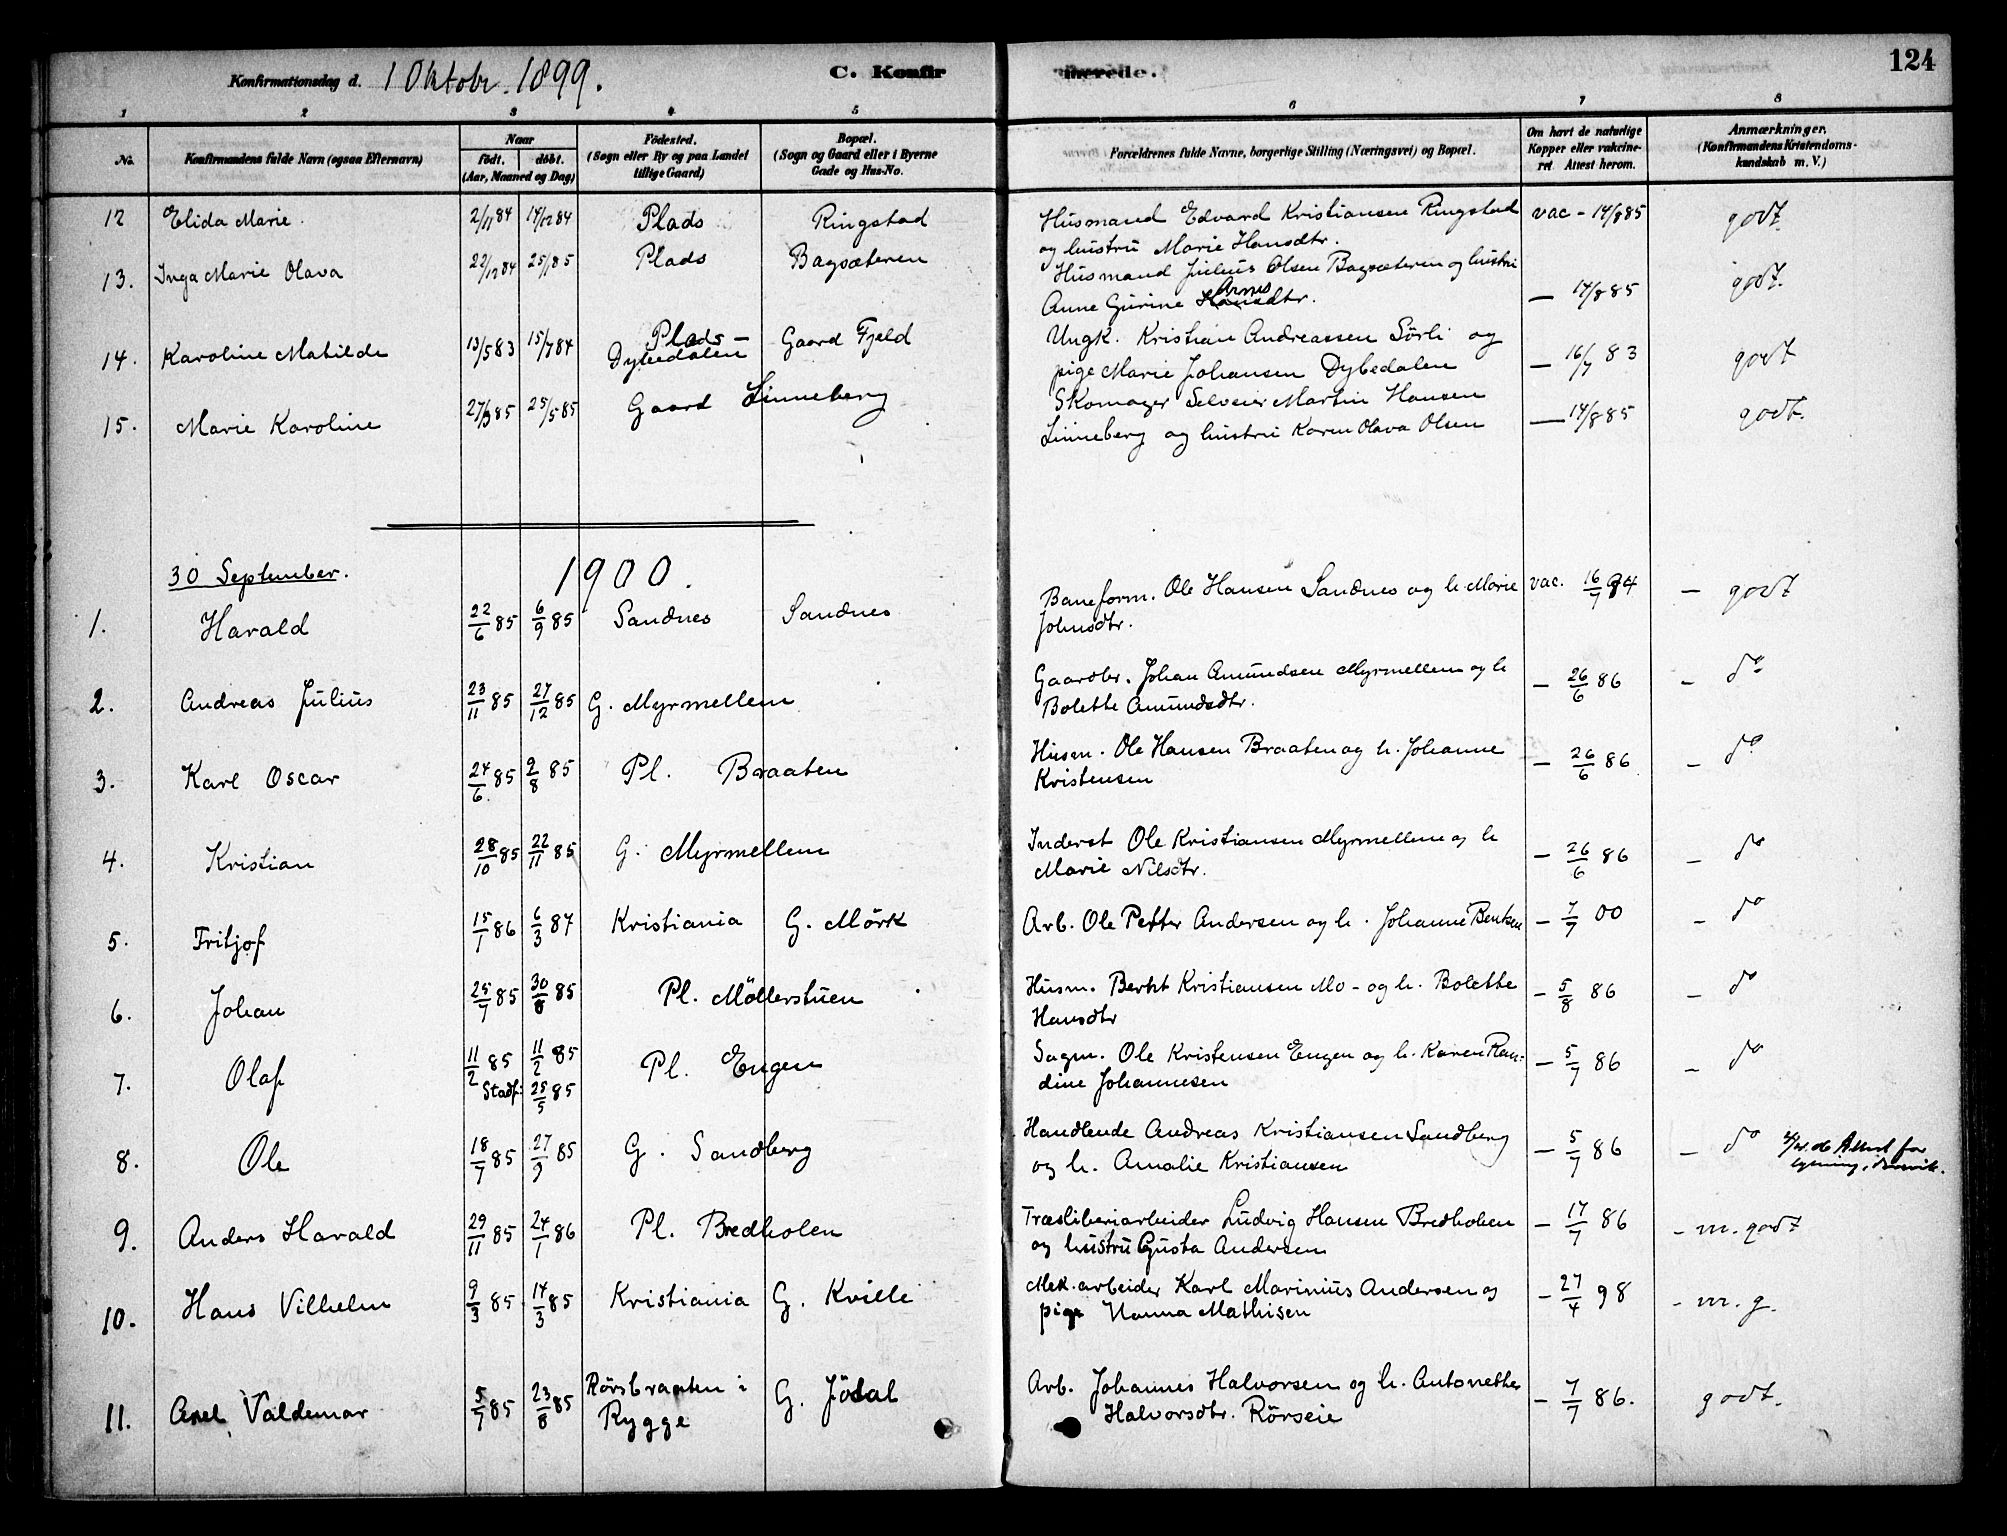 Konfirmationsdag d. 1 Oktobr. 1899. C. Konfirmerede. 124
1 2 3 4 5 6 7 8
No. Konfirmandens fulde Navn (ogsaa Efternavn) Naar født. døbt. (Aar, Maaned og Dag) Fødested. (Sogn eller By og paa Landet tillige Gaard) Bopæl. (Sogn og Gaard eller i Byerne Gade og Hus-No.) Forældrenes fulde Navne, borgerlige Stilling (Næringsvei) og Bopæl. Om havt de naturlige Kopper eller vakcineret Attest herom. Anmærkninger. (Konfirmandens Kristendomskundskab m. V.)
12 Elida Marie. 2/11 84 14/12 84 Plads Ringstad Husmand Edvard Kristiansen Ringstad vac - 14/8 85 godt.
og hustru Marie Hansdtr.
13. Inga Marie Olava 22/12 84 25/1 85 Plads Bagsæteren Husmand Julius Olsen Bagsæteren og hustru
Anne Gurine Arnesdtr. — 14/8 85 godt.
14. Karoline Matilde 13/5 83 15/7 84 Plads – Dybedalen Gaard Fjeld Ungk. Kristian Andreassen Sörli og
pige Marie Johansen Dybedalen — 16/7 83 godt
15. Marie Karoline 27/3 85 25/5 85 Gaard Linneberg Skomager Selveier Martin Hansen
Linneberg og hustru Karen Olava Olsen — 14/8 85 godt.
30 September. 1900.
1. Harald 22/6 85 6/9 85 Sandnes Sandnes Baneform. Ole Hansen Sandnes og h. Marie vac. 16/7 94 – godt
Johnsdtr.
2. Andreas Julius 23/11 85 27/12 85 G. Myrmellem Gaardbr. Johan Amundsen Myrmellem og h – 26/6 86 – do
Bolette Amundsdtr.
3. Karl Oscar 24/6 85 2/8 85 Pl. Braaten Husm. Ole Hansen Braaten og h. Johanne – 26/6 86 – do
Kristensen
4. Kristian 28/10 85 22/11 85 G. Myrmellem Inderst Ole Kristiansen Myrmellem og h – 26/6 86 – do
Marie Nilsdtr.
5. Fritjof 15/1 86 6/3 87 Kristiania G. Mörk Arb. Ole Petter Andersen og h. Johanne Bentsen – 7/7 00 – do
6. Johan 25/7 85 30/8 85 Pl. Möllerstuen Husm. Bernt Kristiansen Mo – og h. Bolette – 5/8 86 – do
Hansdtr
7. Olaf 11/2 85 11/2 85 Pl. Engen Sagm. Ole Kristensen Engen og h. Karen Ran- – 5/7 86 – do
Stadf: 25/5 85 dine Johannesen
8. Ole 18/7 85 27/9 85 G. Sandberg Handlende Andreas Kristiansen Sandberg – 5/7 86 – do
og h. Amalie Kristiansen Attest for lysning,
9. Anders Harald 29/11 85 24/1 86 Pl. Bredholen Træsliberiarbeider Ludvig Hansen Bredholen – 17/7 86 – m. godt
og hustru Gusta Andersen
10. Hans Vilhelm 9/3 85 14/3 85 Kristiania G. Kville Mek. arbeider Karl Marinius Andersen og – 27/4 98 – m. g.
pige Nanna Mathisen
11. Axel Valdemar 5/7 85 23/8 85 Rörsbraaten i Rygge G. Jödal Arb. Johannes Halvorsen og h. Antonette – 7/7 86. godt.
Halvorsdtr. Rörseie